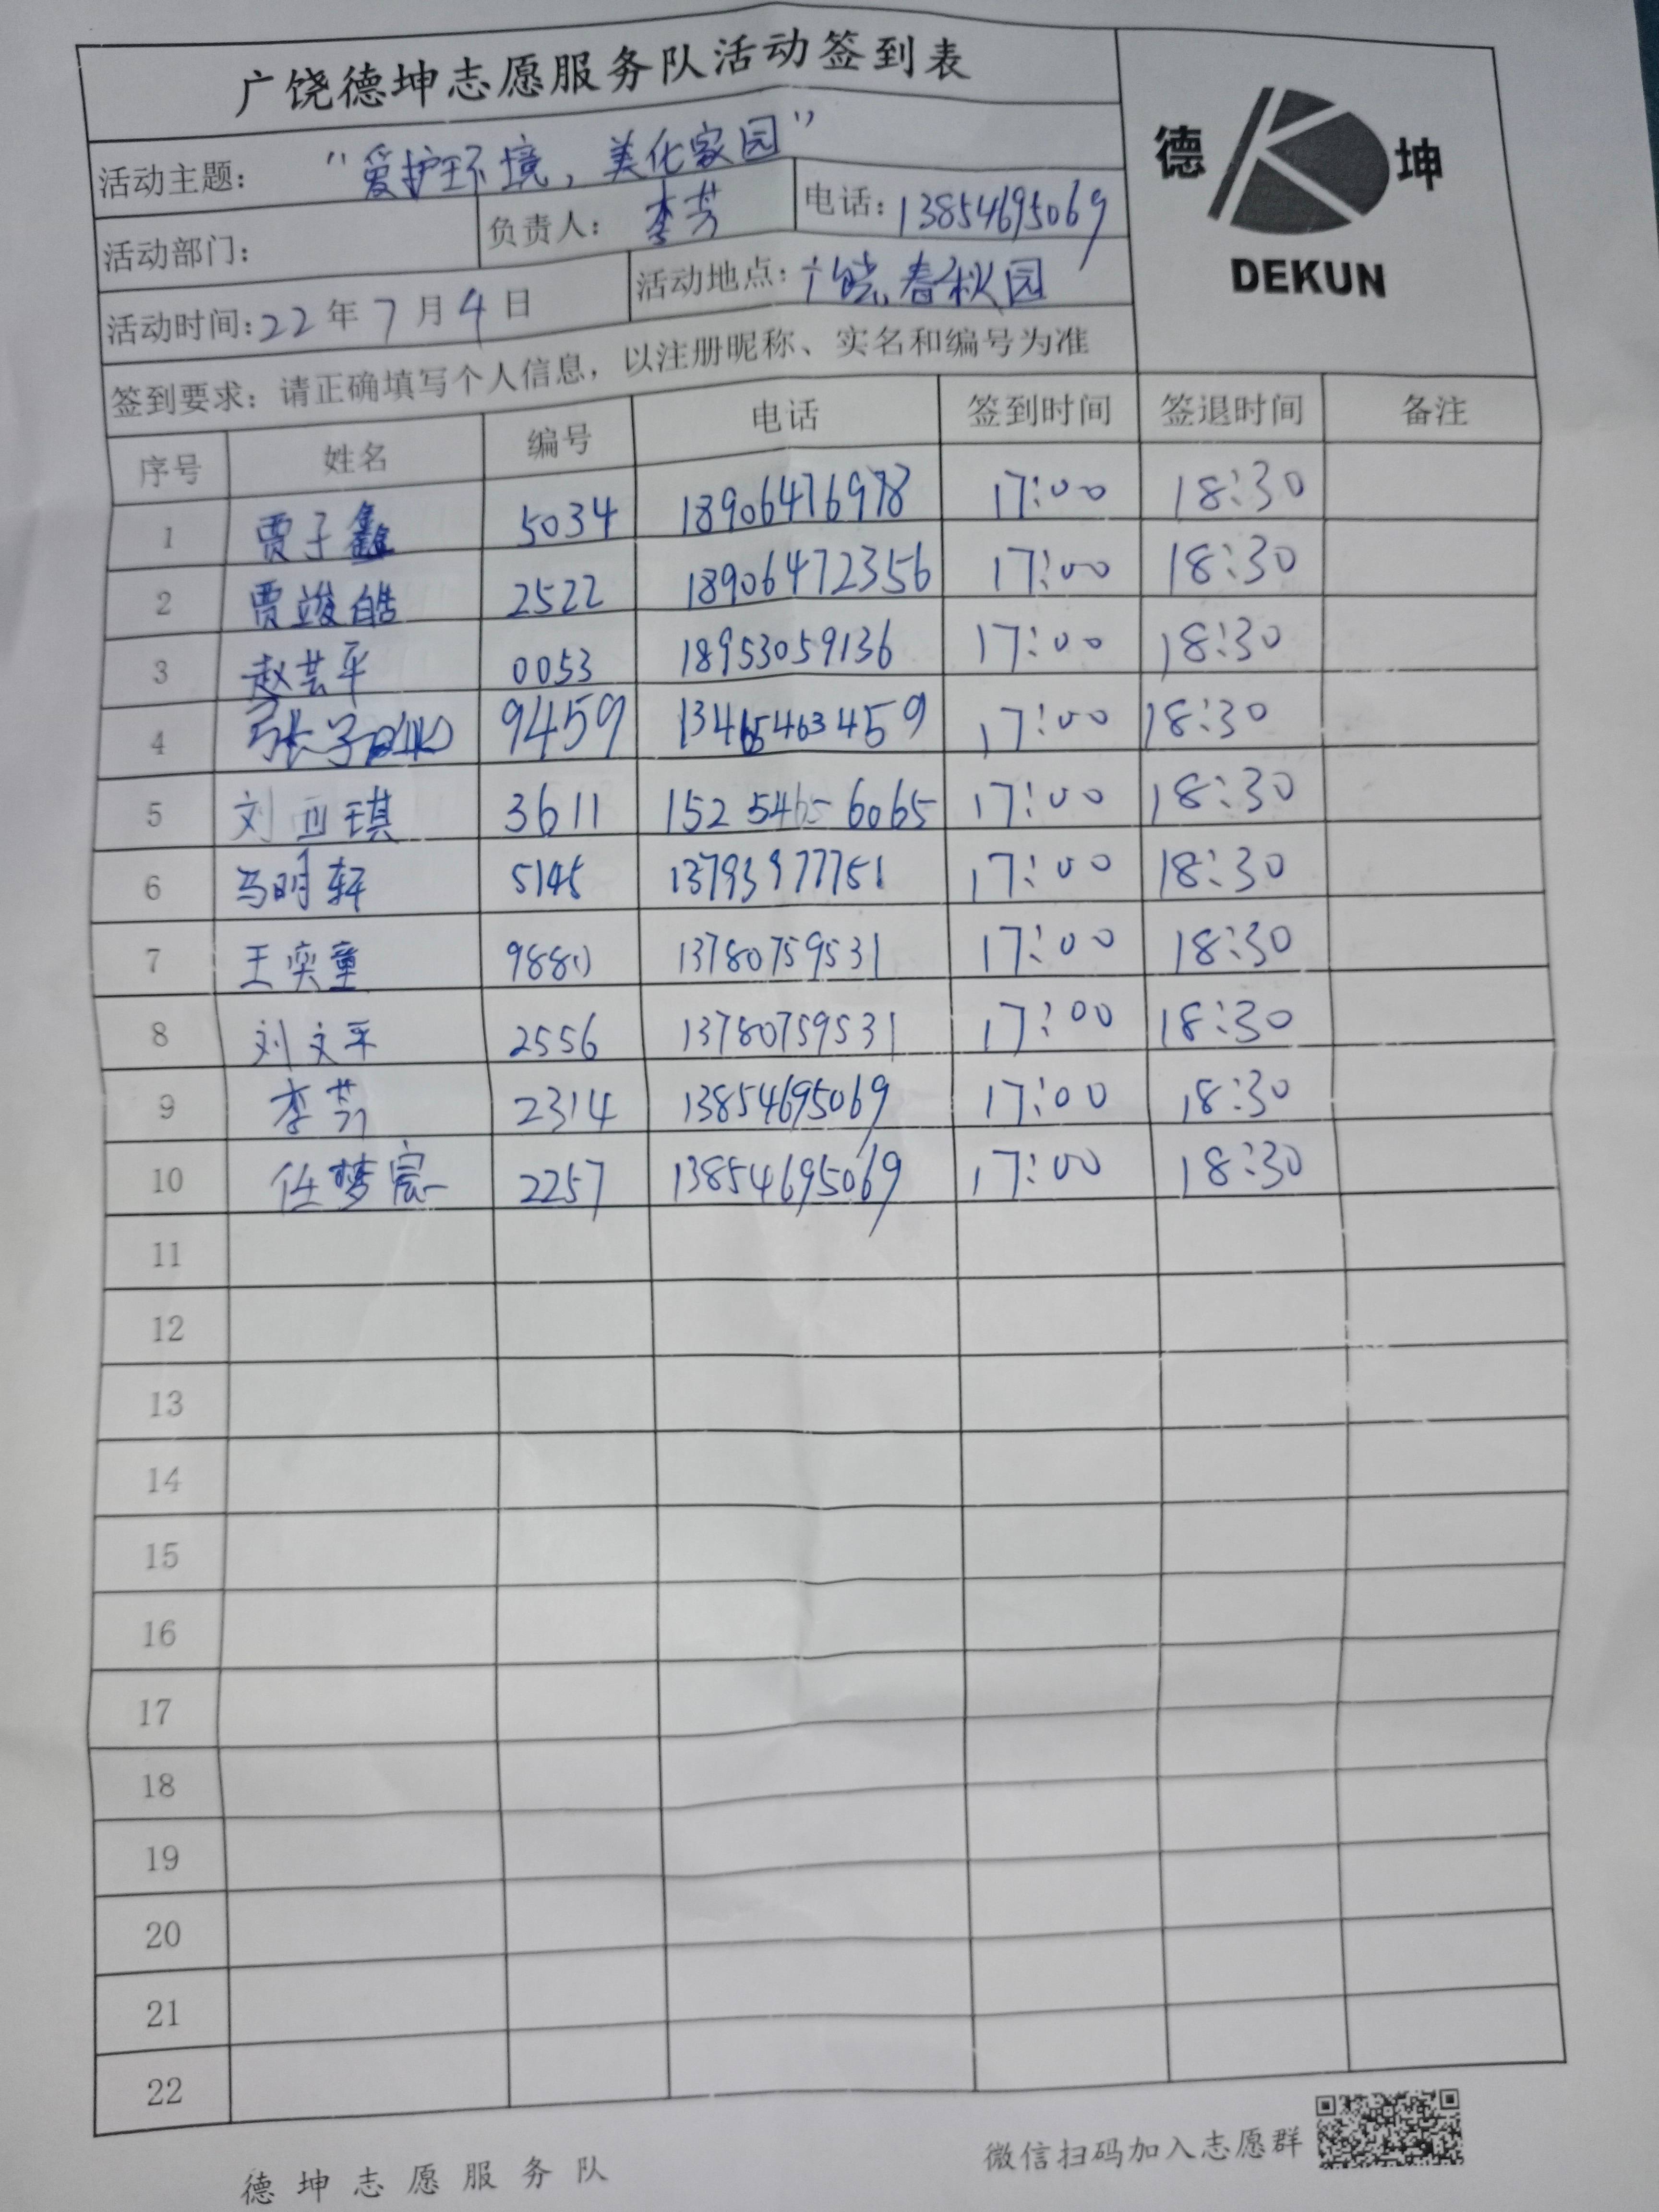 广饶德坤志愿服务队活动签到表
德 坤
DEKUN
活动主题: "爱护环境,美化家园"
活动部门: 负责人: 李芳 电话: 13854695069
活动时间:22年7月4日 活动地点:广饶春秋园
签到要求:请正确填写个人信息,以注册昵称、实名和编号为准
序号 姓名 编号 电话 签到时间 签退时间 备注
1 贾子鑫 5034 18906476978 17:00 18:30
2 贾竣皓 2522 18906472356 17:00 18:30
3 赵芸平 0053 18953059136 17:00 18:30
4 张子 9459 13465463459 17:00 18:30
5 刘亚琪 3611 152 5465 6065 17:00 18:30
6 马明轩 5145 13793977751 17:00 18:30
7 王奕童 9880 13780759531 17:00 18:30
8 刘文平 2556 13780759531 17:00 18:30
9 李芳 2314 13854695069 17:00 18:30
10 任梦宸 2257 13854695069 17:00 18:30
11
12
13
14
15
16
17
18
19
20
21
22
德坤志愿服务队 微信扫码加入志愿群